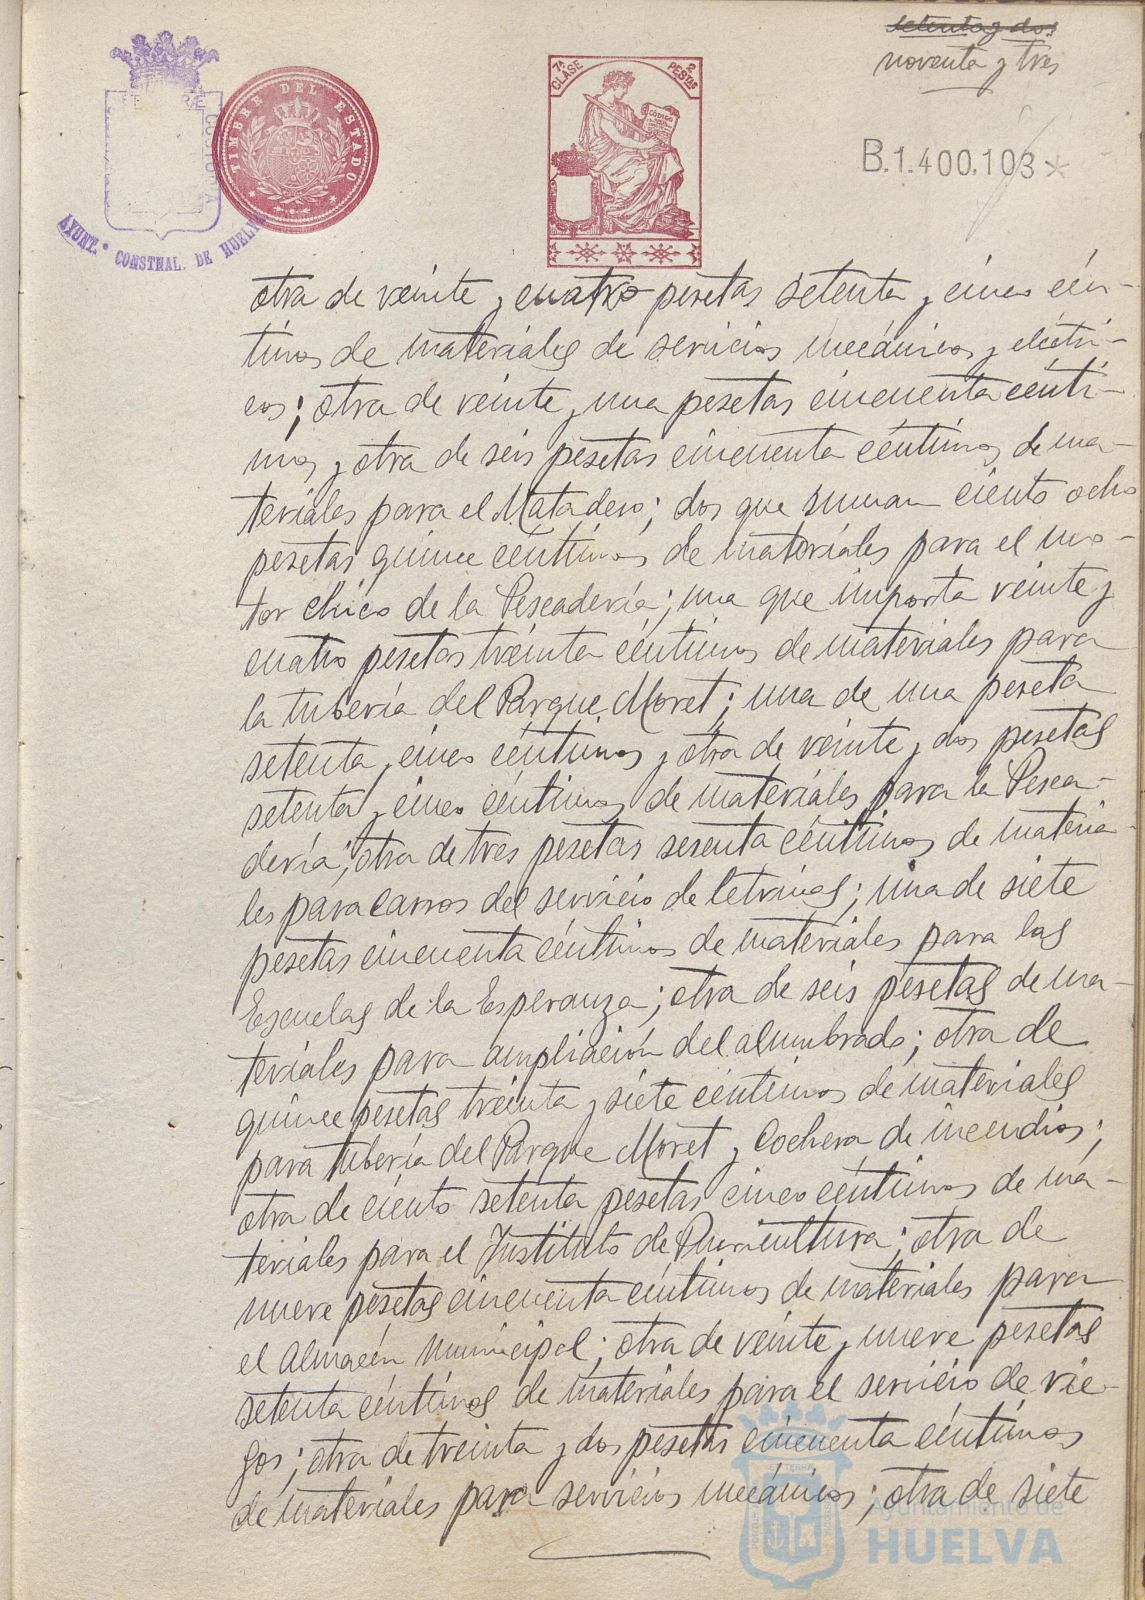 setenta y dos
noventa y tres
TIMBRE DEL ESTADO
7ª CLASE
2 PESTAS
CÓDIGO
B.1.400.103*
AYUNT.º CONSTNAL. DE HUELVA
otra de veinte y cuatro pesetas setenta y cinco cén-
timos de materiales de servicios mecánicos y eléctri-
cos; otra de veinte y una pesetas cincuenta cénti-
mos y otra de seis pesetas cincuenta céntimos de ma-
teriales para el Matadero; dos que suman ciento ocho
pesetas quince céntimos de materiales para el mo-
tor chico de la Pescadería; una que importa veinte y
cuatro pesetas treinta céntimos de materiales para
la tubería del Parque Moret; una de una peseta
setenta y cinco céntimos y otra de veinte y dos pesetas
setenta y cinco céntimos de materiales para la Pesca-
dería; otra de tres pesetas sesenta céntimos de materia-
les para carros del servicio de letrinas; una de siete
pesetas cincuenta céntimos de materiales para las
Escuelas de la Esperanza; otra de seis pesetas de ma-
teriales para ampliación del alumbrado; otra de
quince pesetas treinta y siete céntimos de materiales
para tubería del Parque Moret y Cochera de incendios;
otra de ciento setenta pesetas cinco céntimos de ma-
teriales para el Instituto de Puericultura; otra de
nueve pesetas cincuenta céntimos de materiales para
el Almacén Municipal; otra de veinte y nueve pesetas
setenta céntimos de materiales para el servicio de rie-
gos; otra de treinta y dos pesetas cincuenta céntimos
de materiales para servicios mecánicos; otra de siete
Ayuntamiento de
HUELVA